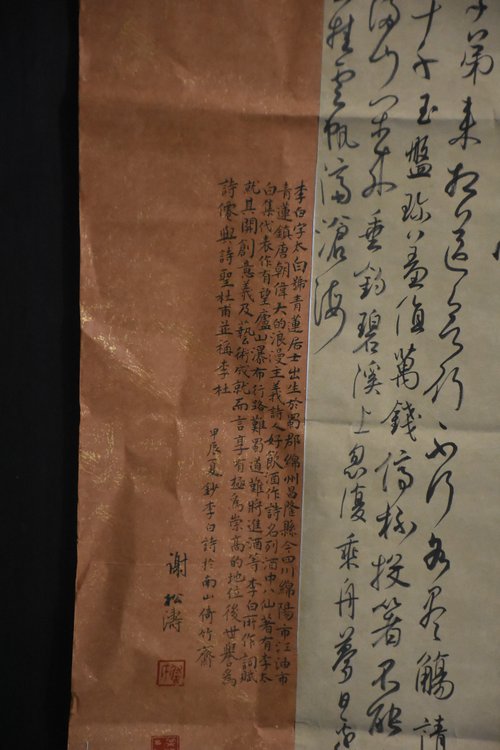 弟來相送欲行不行各盡觴請
十千玉盤珍羞值萬錢停杯投箸不能
滿山閒來垂釣碧溪上忽復乘舟夢日
挂雲帆濟滄海
李白字太白號青蓮居士出生於蜀郡綿州昌隆縣今四川綿陽市江油市
青蓮鎮唐朝偉大的浪漫主義詩人好飲酒作詩名列酒中八仙著有李太
白集代表作有望廬山瀑布行路難蜀道難將進酒等李白所作詞賦
就其開創意義及藝術成就而言享有極爲崇高的地位後世譽爲
詩僊與詩聖杜甫並稱李杜
甲辰夏鈔李白詩於南山倚竹齋
謝松濤